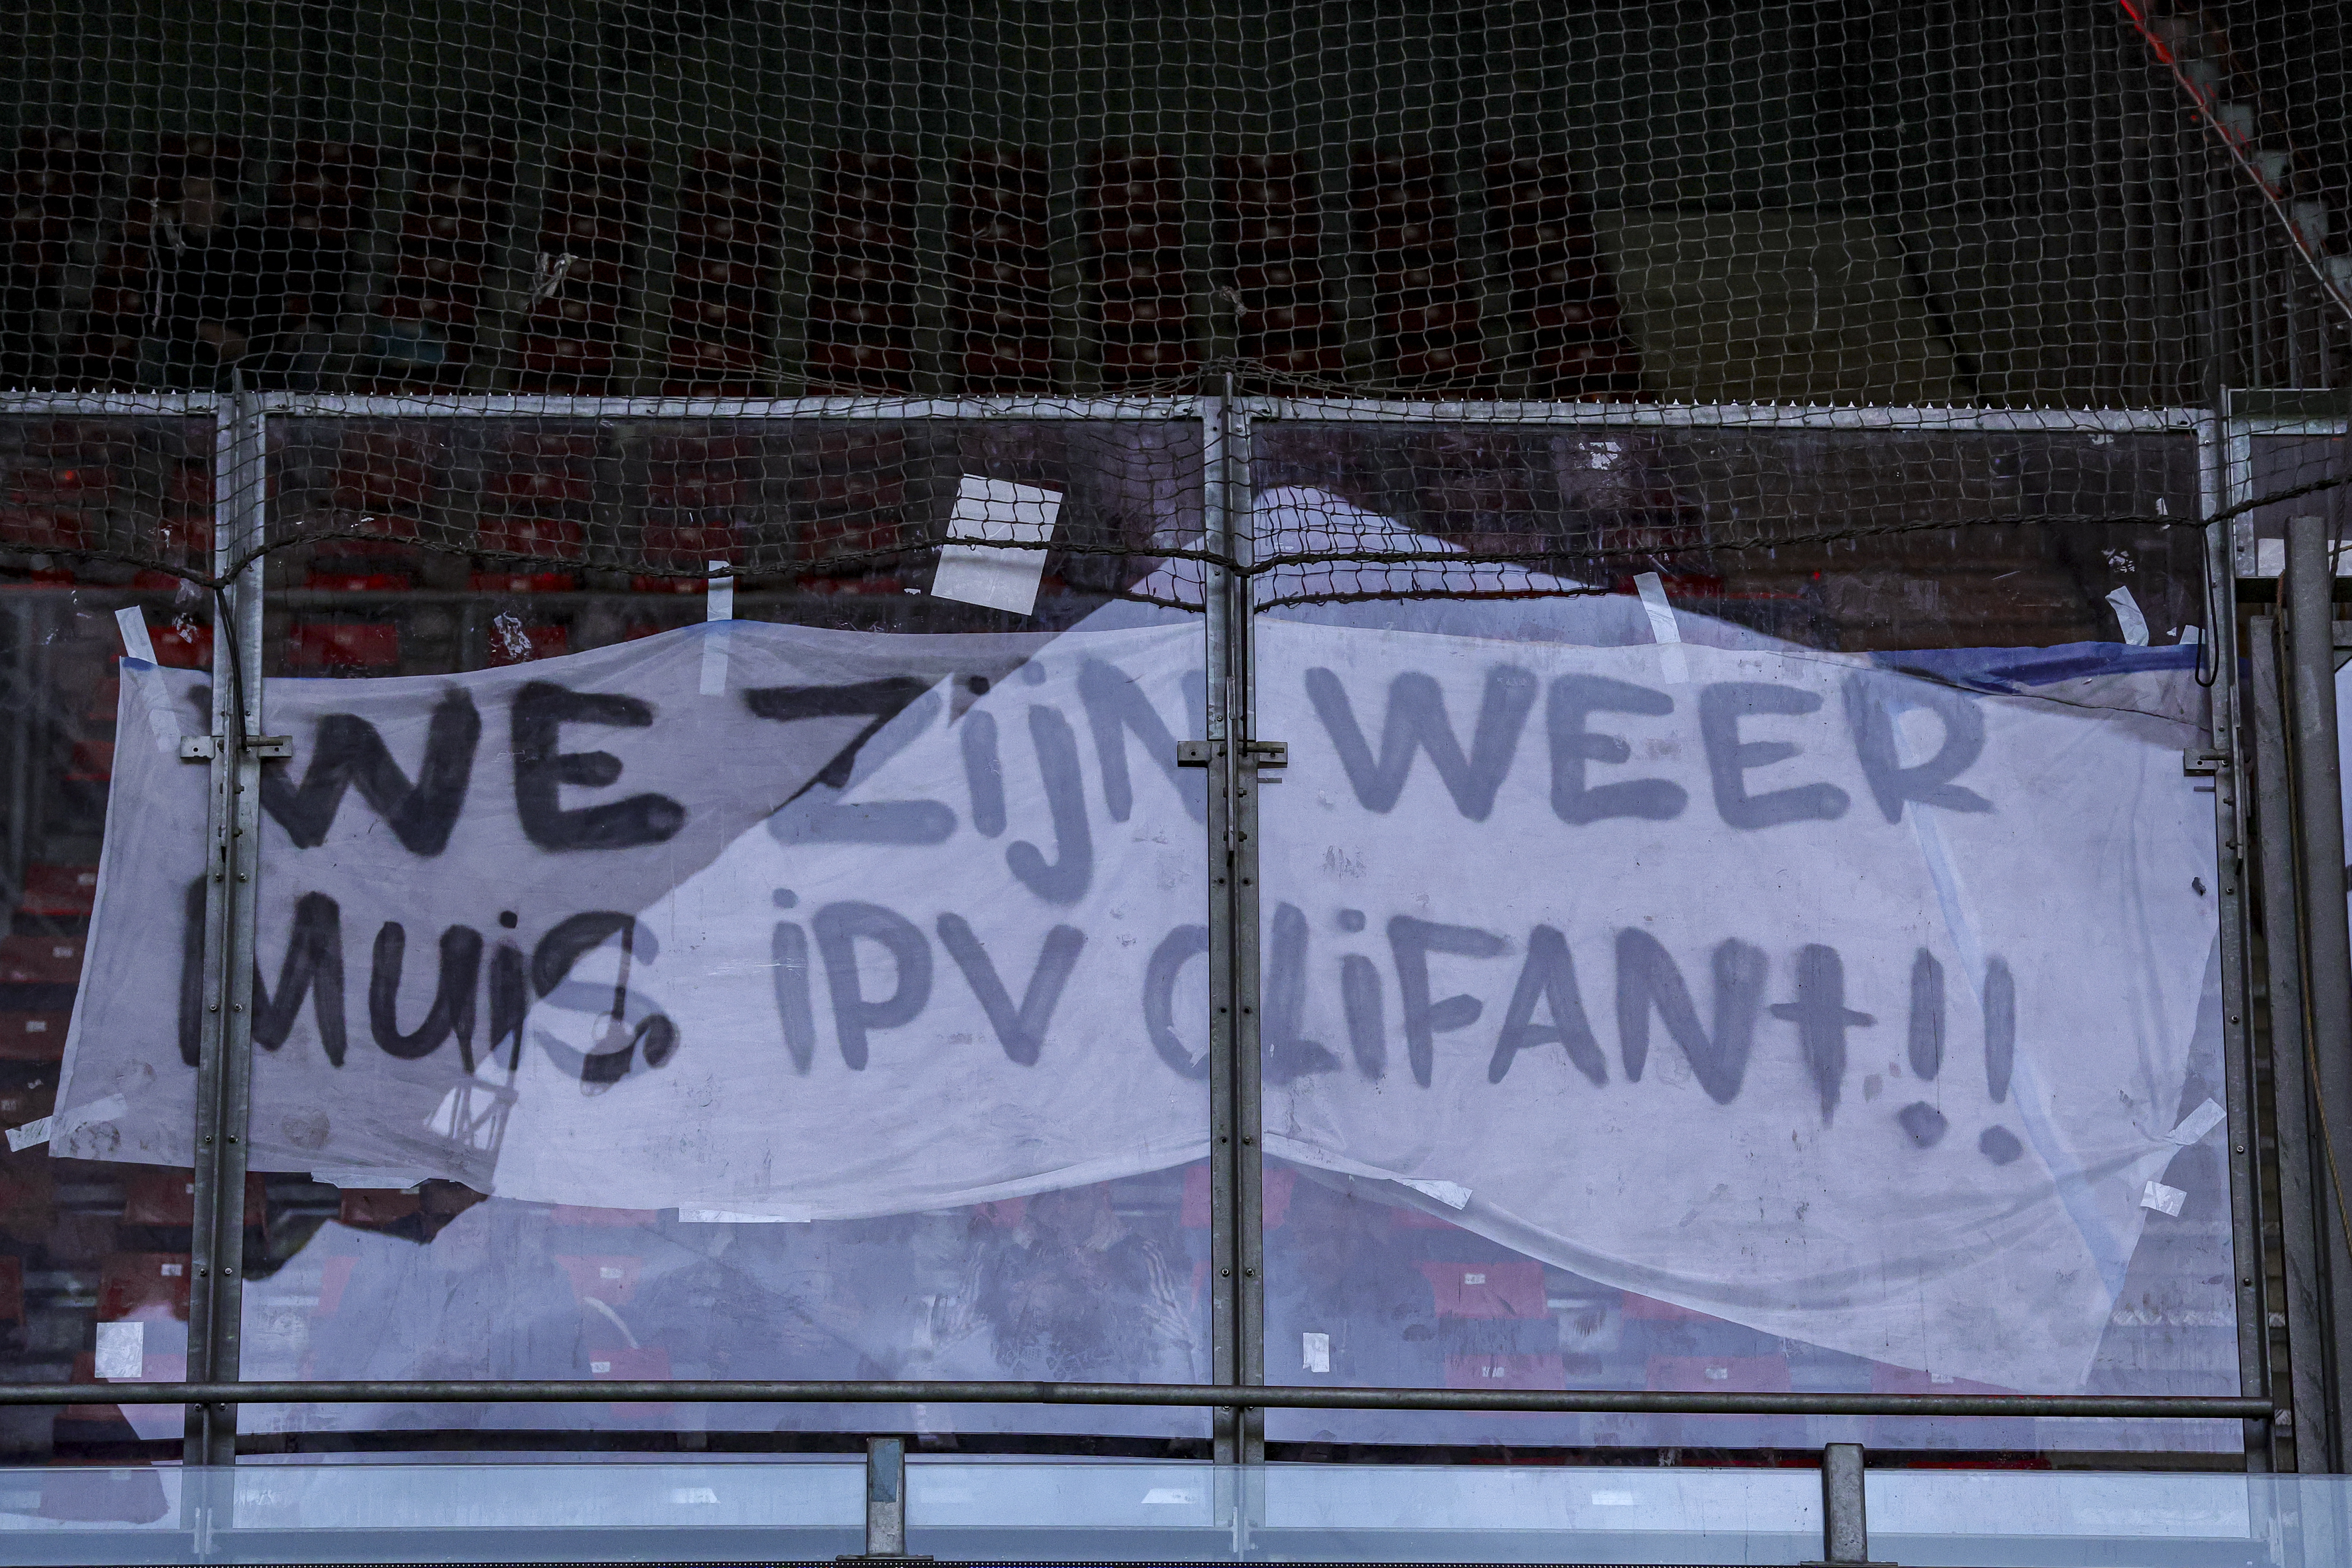 WE ZijN WEER
MUiS iPV OLiFANt!!